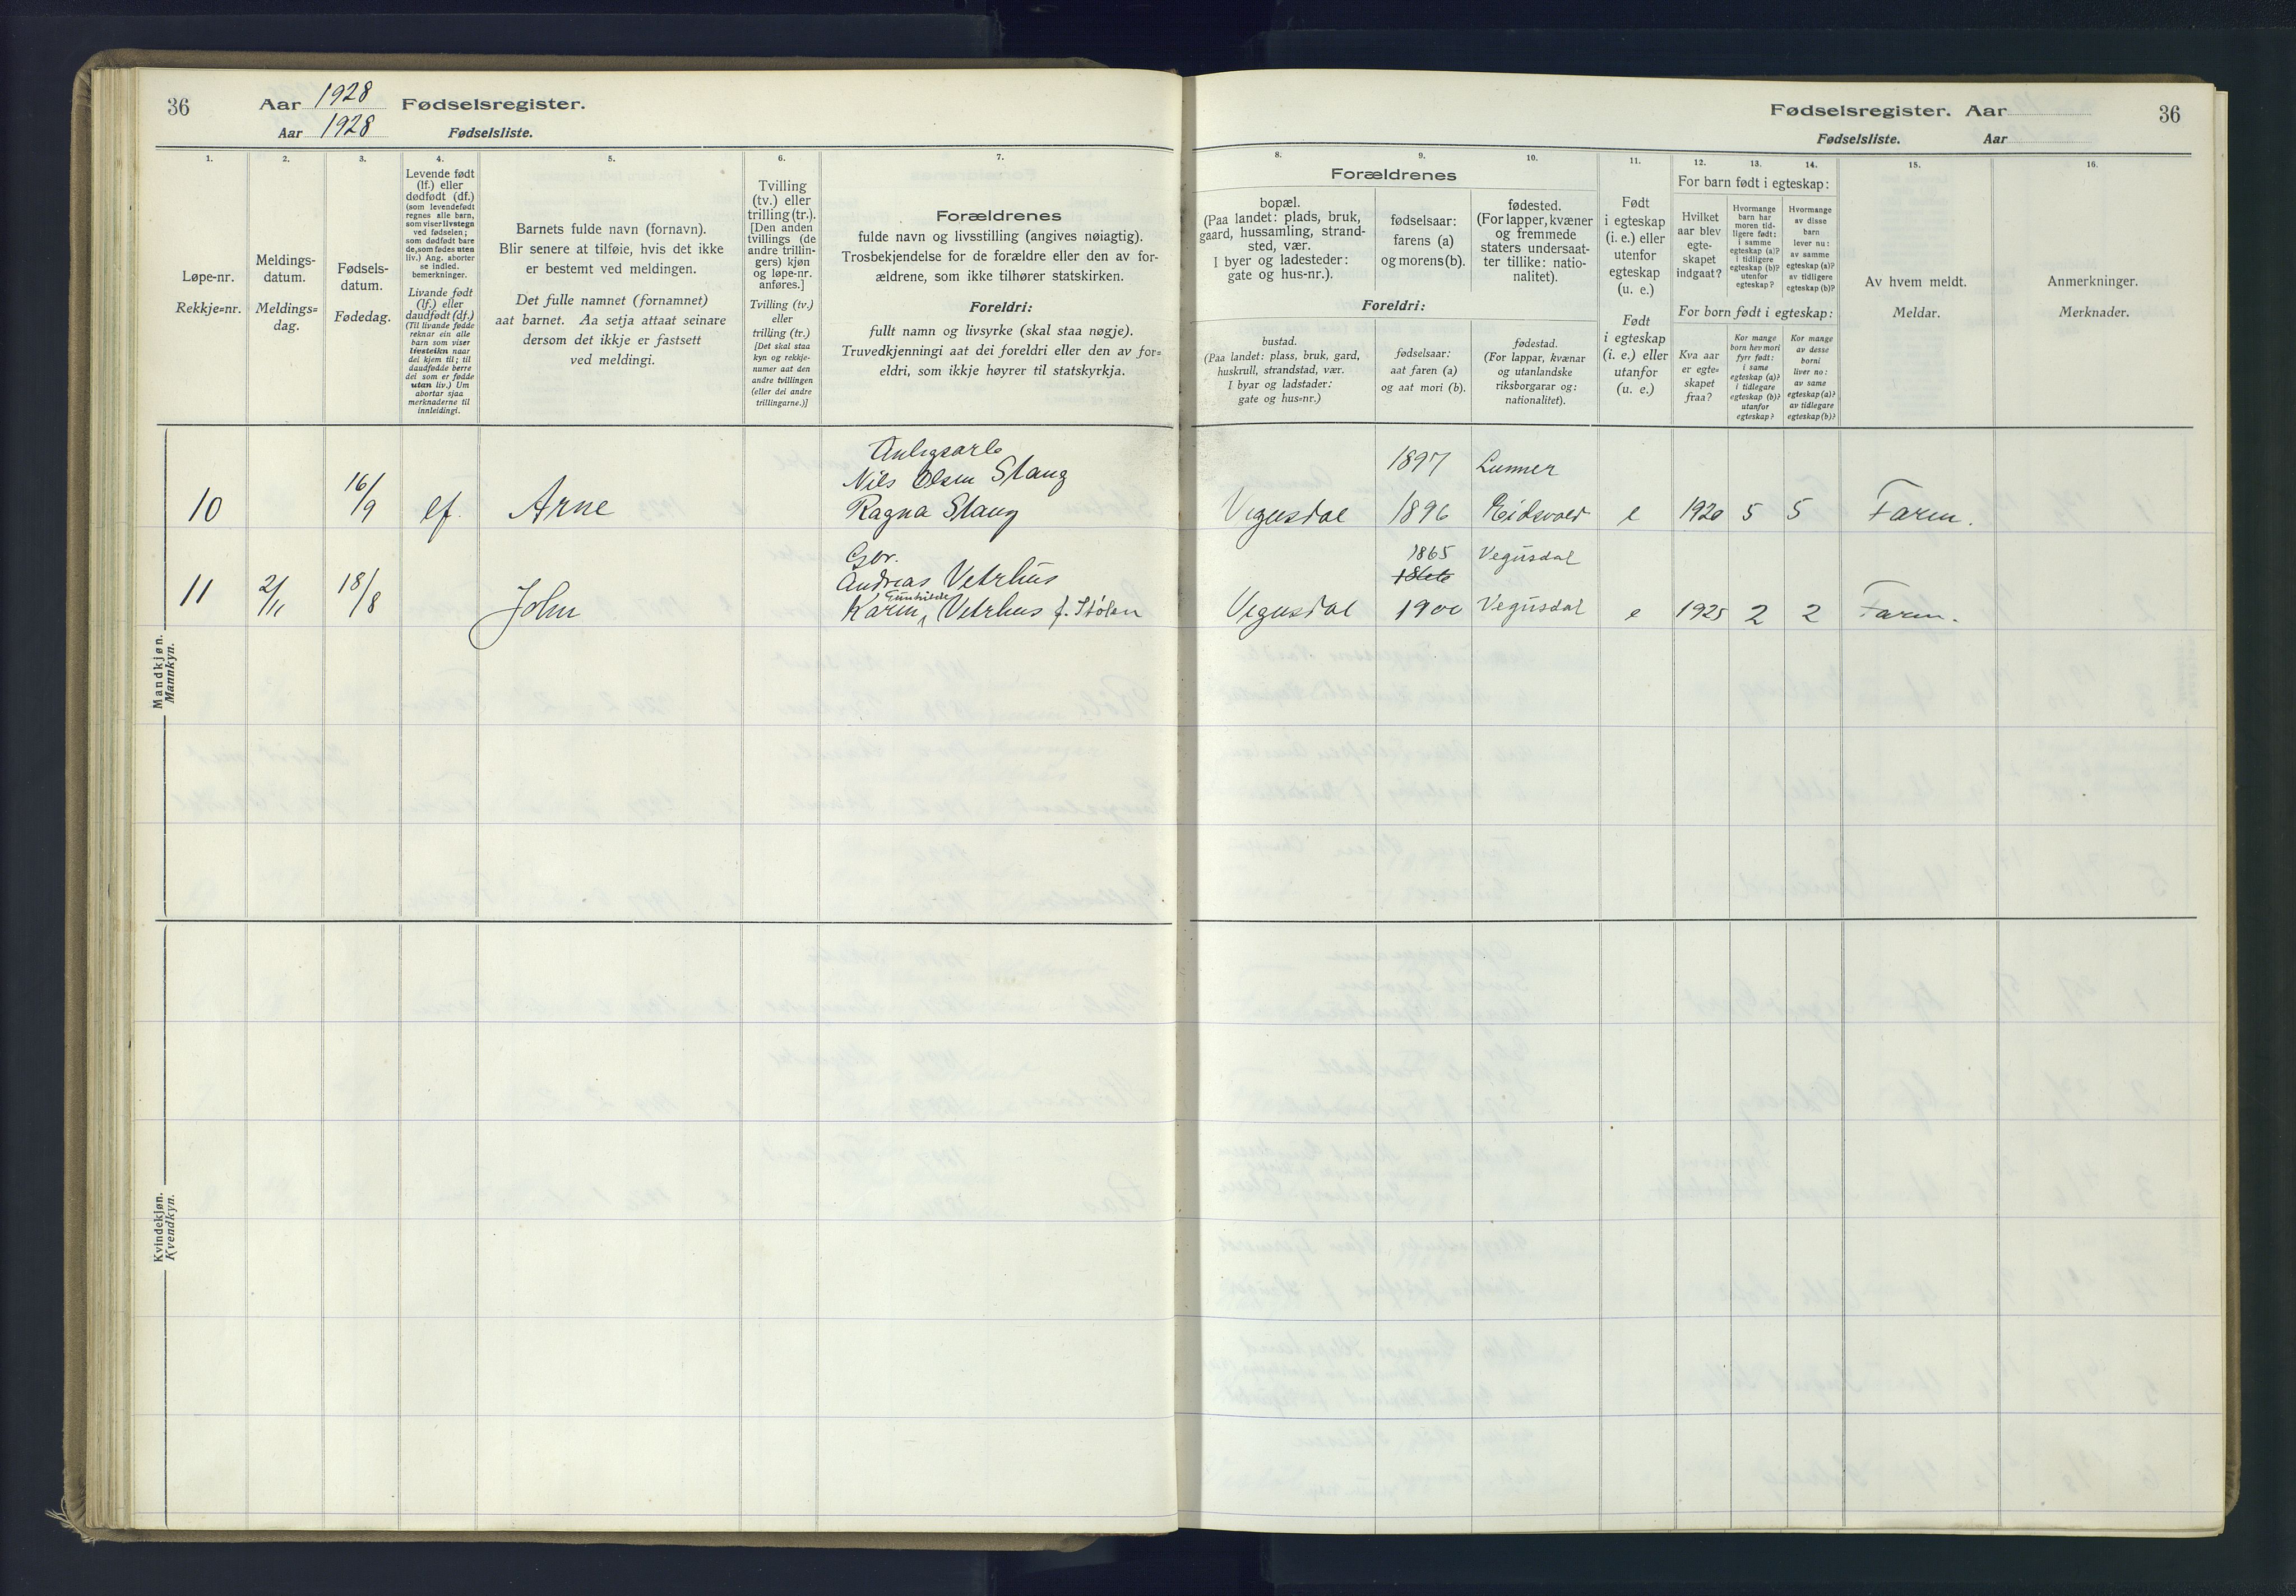 36 Aar 1928 Fødselsregister.
Aar 1928 Fødselsliste.
1. 2. 3. 4. 5. 6. 7.
Løpe-nr.
Rekkje=nr.
Meldings-
datum.
Meldings=
dag.
Fødsels-
datum.
Fødedag.
Levende født
(lf.) eller
dødfødt (df.)
(som levendefødt
regnes alle barn,
som viser livstegn
ved fødselen;
som dødfødt bare
de, som fødes uten
liv.) Ang. aborter
se indled.
bemerkninger.
Livande født
(lf.) eller
daudfødt (df.)
(Til livande fødde
reknar ein alle
barn som viser
livsteikn naar
dei kjem til; til
daudfødde berre
dei som er fødde
utan liv.) Um
abortar sjaa
merknaderne til
innleidingi.
Barnets fulde navn (fornavn).
Blir senere at tilføie, hvis det ikke
er bestemt ved meldingen.
Det fulle namnet (fornamnet)
aat barnet. Aa setja attaat seinare
dersom det ikkje er fastsett
ved meldingi.
Tvilling
(tv.) eller
trilling (tr.).
[Den anden
tvillings (de
andre trillin-
gers) kjøn
og løpe-nr.
anføres.]
Tvilling (tv.)
eller
trilling (tr.)
[Det skal staa
kyn og rekkje-
numer aat den
andre tvillingen
(eller dei andre
trillingarne.)]
Forældrenes
fulde navn og livsstilling (angives nøiagtig).
Trosbekjendelse for de forældre eller den av for-
ældrene, som ikke tilhører statskirken.
Foreldri:
fullt namn og livsyrke (skal staa nøgje).
Truvedkjenningi aat dei foreldri eller den av for=
eldri, som ikkje høyrer til statskyrkja.
Mandkjøn.
Mannkyn.
10 16/9 lf. Arne
Nils Olsen Stang
Ragna Stang
11 2/11 18/8 John
Gbr.
Andreas Vetrhus
Gunhilde
Karin, Vetrhus f. Stølen
Kvindekjøn.
Kvendkyn.
Fødselsregister. Aar 36
Fødselsliste. Aar
8. 9. 10. 11. 12. 13. 14. 15. 16.
Forældrenes
bopæl.
(Paa landet: plads, bruk,
gaard, hussamling, strand-
sted, vær.
I byer og ladesteder:
gate og hus-nr.).
fødselsaar:
farens (a)
og morens (b).
fødested.
(For lapper, kvæner
og fremmede
staters undersaat-
ter tillike: natio-
nalitet).
Foreldri:
bustad.
(Paa landet: plass, bruk, gard,
huskrull, strandstad, vær.
I byar og ladstader:
gate og hus=nr.)
fødselsaar:
aat faren (a)
og aat mori (b).
fødestad.
(For lappar, kvænar
og utanlandske
riksborgarar og:
nationalitet).
Født
i egteskap
(i. e.) eller
utenfor
egteskap
(u. e.)
Født
i egteskap
(i. e.) eller
utanfor
(u. e.)
For barn født i egteskap:
Hvilket
aar blev
egte-
skapet
indgaat?
Hvormange
barn har
moren tid-
ligere født:
i samme
egteskap (a)?
i tidligere
egteskap (b)?
utenfor
egteskap?
Hvormange
av disse
barn
lever nu:
av samme
egteskap (a)?
av tidligere
egteskap (b)?
For born født i egteskap:
Kva aar
er egte=
skapet
fraa?
Kor mange
born hev mori
fyrr født:
i same
egteskap (a)?
i tidlegare
egteskap (b)?
utanfor
egteskap?
Kor mange
av desse
borni
liver no:
av same
egteskap (a)?
av tidlegare
egteskap (b)?
Av hvem meldt.
Meldar.
Anmerkninger.
Merknader.
1897 Lunner
Vegusdal 1896 Eidsvold e 1920 5 5 Faren.
1865 Vegusdal
Vegusdal 1900 Vegusdal e 1925 2 2 Faren.